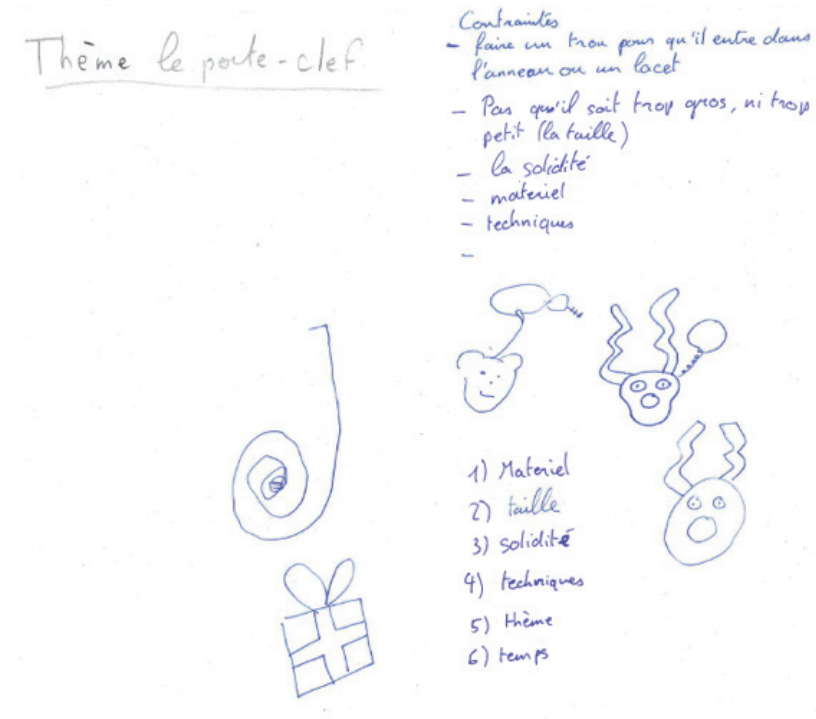 Thème le porte-clef
Contraintes
- faire un trou pour qu'il entre dans
l'anneau ou un lacet
- Pas qu'il soit trop gros, ni trop
petit (la taille)
- la solidité
- materiel
- techniques
-
1) Materiel
2) taille
3) solidité
4) techniques
5) thème
6) temps